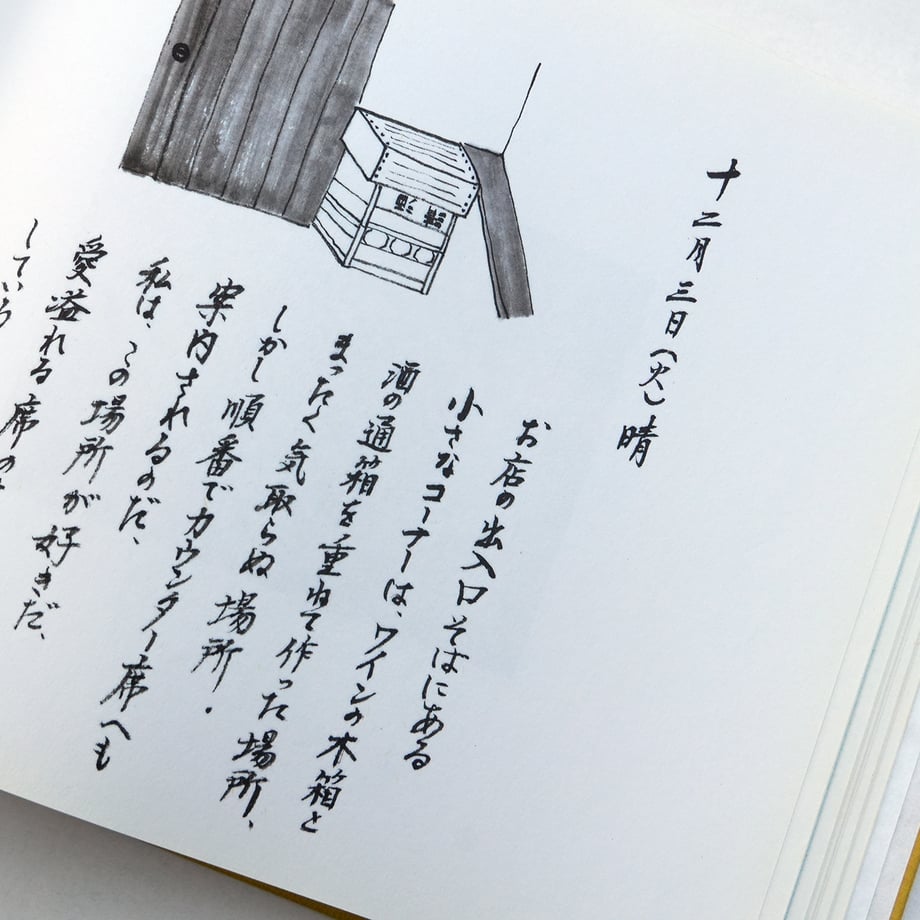 十二月三日(火)晴
お店の出入口そばにある
小さなコーナーは、ワインの木箱と
酒の通箱を重ねて作った場所、
まったく気取らぬ場所.
しかし順番でカウンター席へも
案内されるのだ、
私は、この場所が好きだ、
愛溢れる席の
している